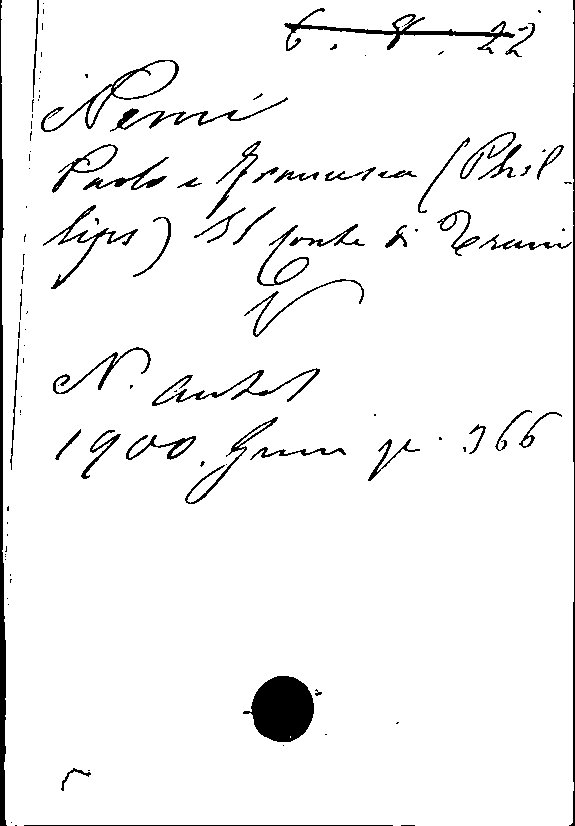 6. 8. 22
Nemi
Paolo e Francesca (Phil-
lips) Il conte di
N. Antol
1900. Giu p. 366